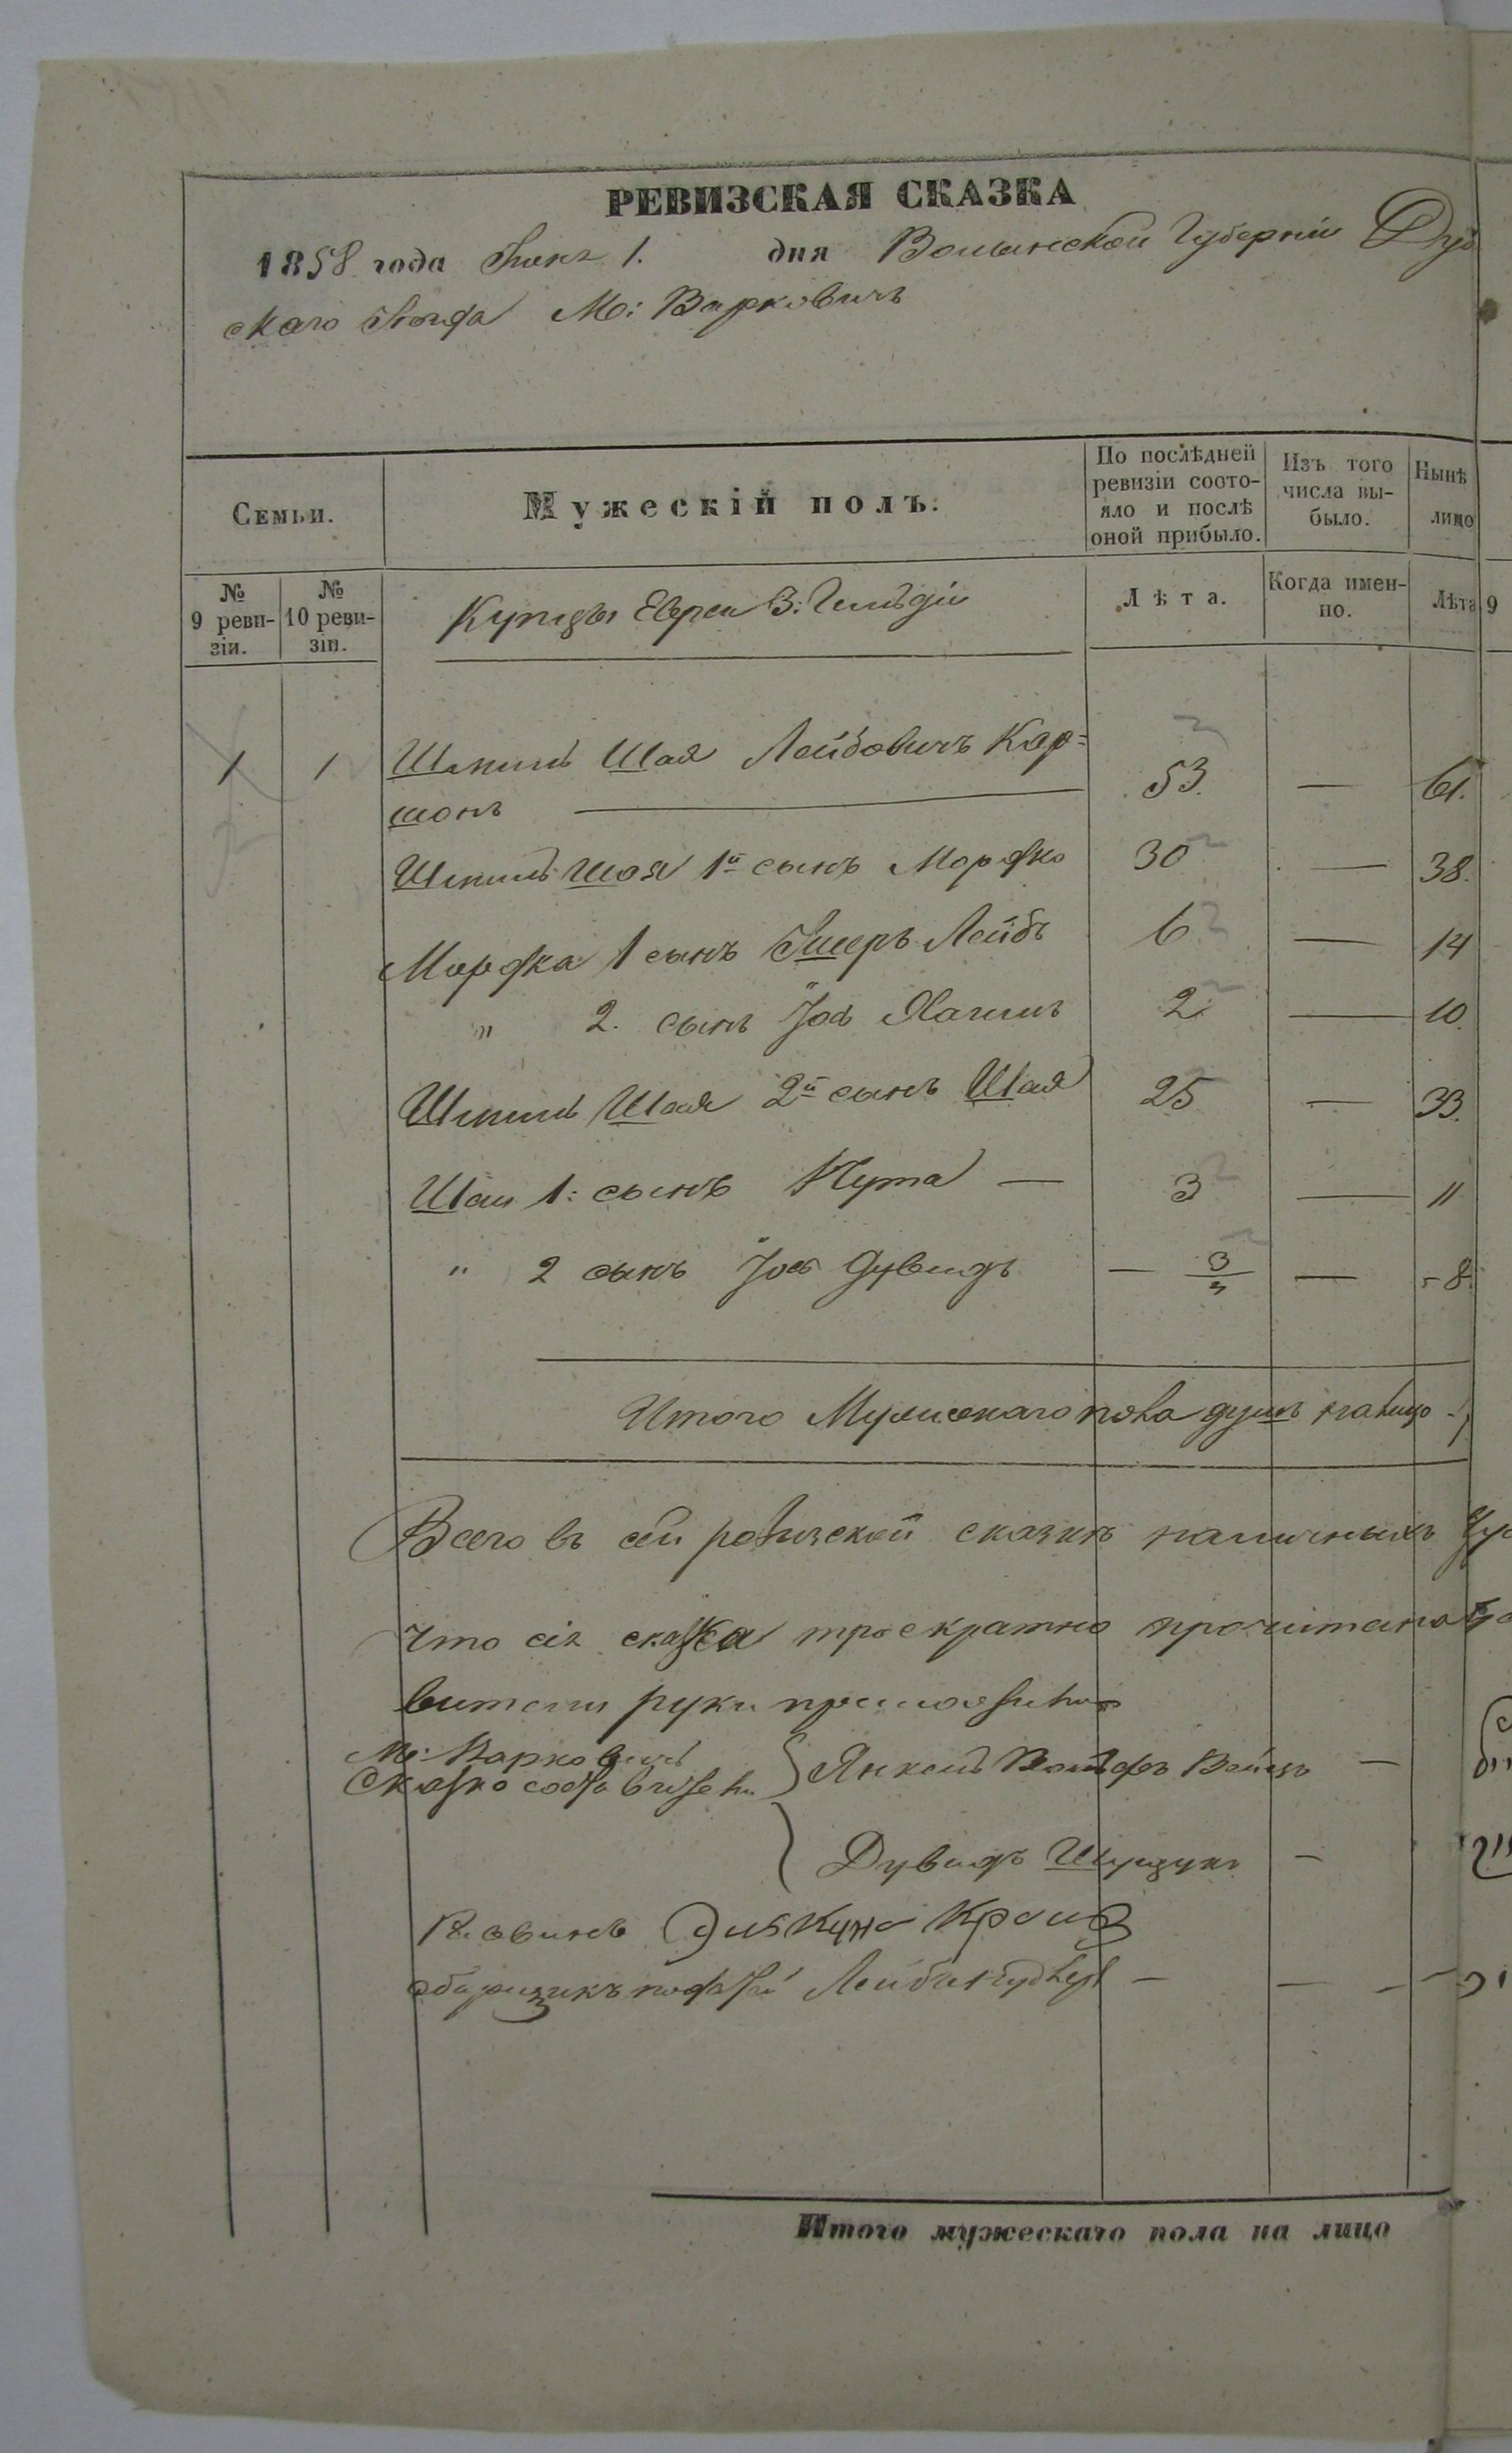 РЕВИЗСКАЯ СКАЗКА
1858 года Июня 1. дня Волынской Губерніи Дуб
скаго Уѣзда М: Варковичъ
Семьи.
Мужескій полъ.
По послѣдней
ревизіи состо-
яло и послѣ
оной прибыло.
Изъ того
числа вы-
было.
Нынѣ
лицо
№
9 реви-
зіи.
№
10 реви-
зіи.
Купцы Евреи 3: Гильдіи
Лѣта.
Когда имен-
но.
Лѣта
9
1 1 Шмуль Шая Лейбовичъ Кор=
шонъ 53. — 61.
Шмуль Шая 1й сынъ Мордко 30 — 38.
Мордка 1 сынъ Лейбъ 6 — 14
" 2. сынъ Іос 2 — 10.
Шмуль Шая 2й сынъ Шая 25 — 33.
Шаи 1: сынъ Нута — 3 — 11
" 2 сынъ Іос Дувидъ — 3 — 8.
Итого Мужескаго пола душъ налицо
Всего въ сей ревизской сказкѣ наличныхъ
Что сія сказка троекратно прочитана
вители руки приложили
М: Варковичъ
Сказко составители } Янкель Вольфъ
} Дувидъ
Равинъ
зборщикъ податей Лейба —
Итого мужескаго пола на лицо